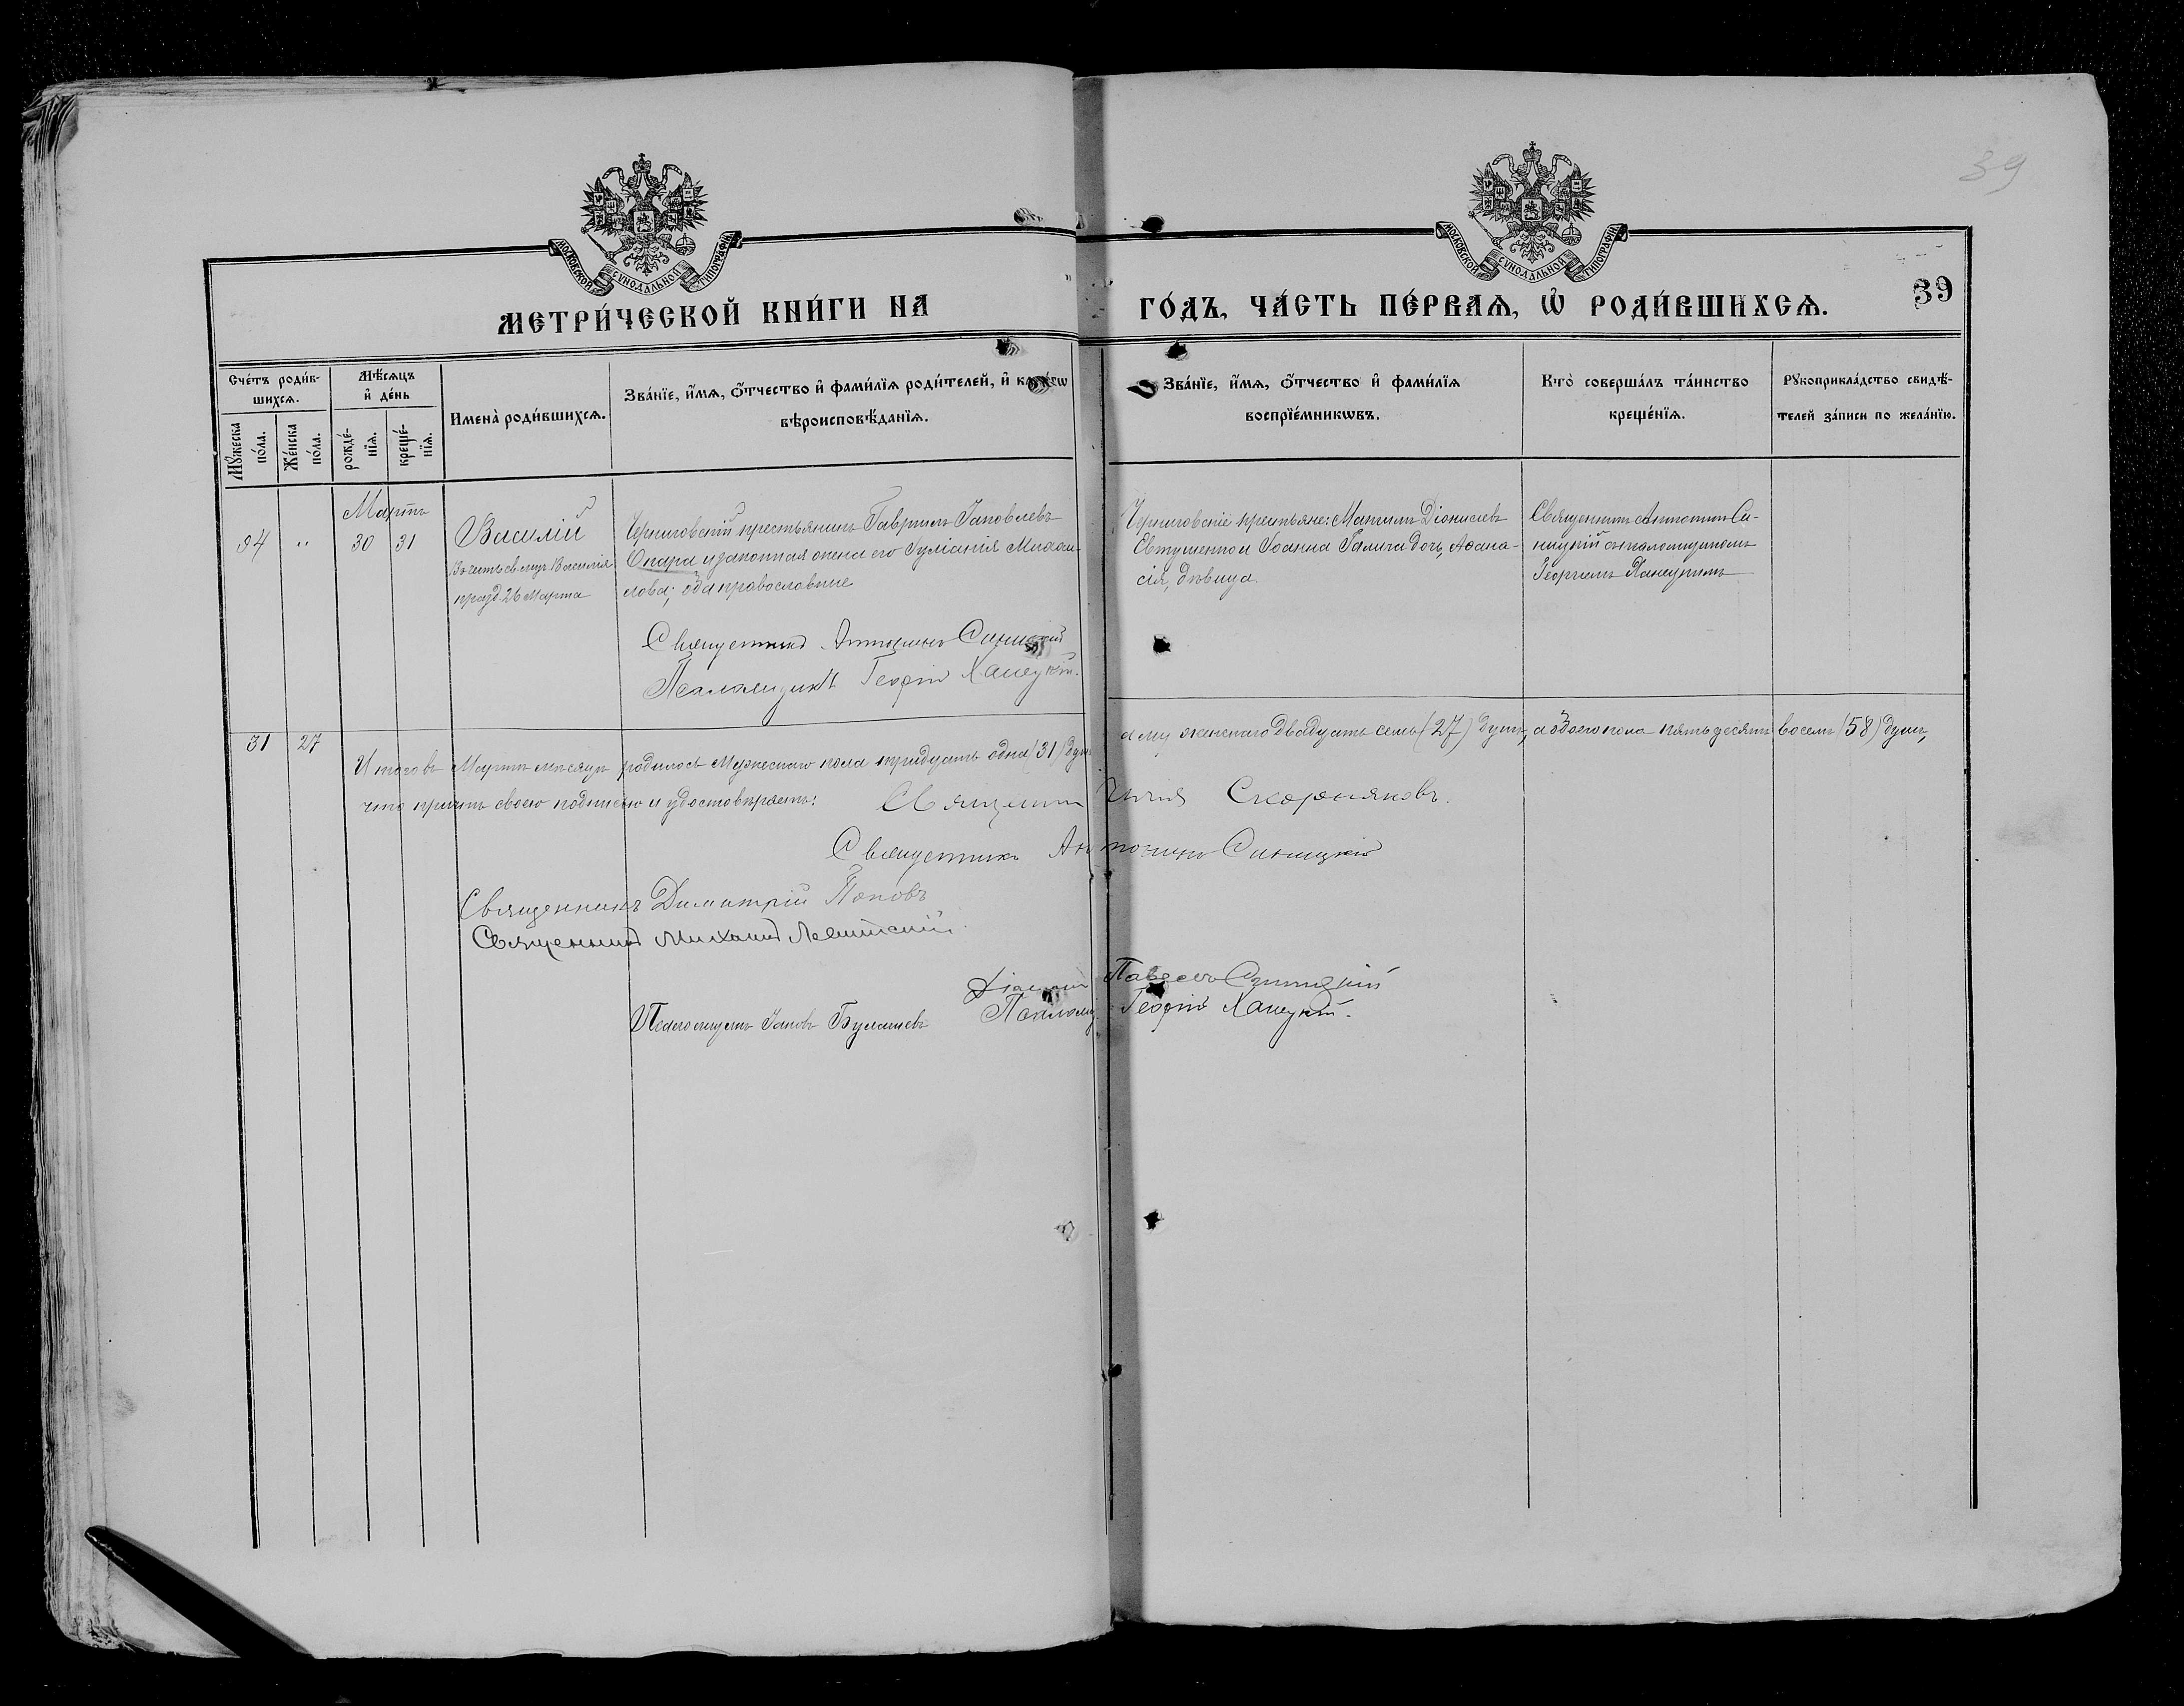 39
МОСКОВСКОЙ СѴНОДАЛЬНОЙ ТИПОГРАФІИ
МОСКОВСКОЙ СѴНОДАЛЬНОЙ ТИПОГРАФІИ
МЕТРИ́ЧЕСКОЙ КНИ́ГИ НА ГО́ДЪ, ЧА́СТЬ ПЕ́РВАѦ, Ѽ РОДИ́ВШИХСѦ.
39
Сче́тъ роди́в-
шихсѧ.
Мѣ́сѧцъ
и҆ де́нь
Имена̀ роди́вшихсѧ.
Зва́нїе, и҆́мѧ, ѻ҆́тчество и҆ фами́лїѧ роди́телей, и҆
вѣроисповѣ́данїѧ.
Зва́нїе, и҆́мѧ, ѻ҆́тчество и҆ фами́лїѧ
воспрїе́мникѡвъ.
Кто̀ соверша́лъ та́инство
креще́нїѧ.
Рꙋкоприкла́дство свидѣ́-
телей за́писи по жела́нїю.
Мꙋ́жеска
по́ла.
Же́нска
по́ла.
рожде́-
нїѧ.
креще́-
нїѧ.
Мартъ
94 " 30 31
Василій
въ честь св. муч. Василія
празд. 26 Марта
Черниговскій крестьянинъ Гавріилъ Іаковлевъ
Опара и законная жена его Іуліанія Михаи-
лова; оба православные
Священникъ Антонинъ Синицкій
Псаломщикъ Георгій Ханецкій.
Черниговскіе крестьяне: Мануилъ Діонисіевъ
Евтушенко и Іоанна Галича дочь, Афана-
сія, дѣвица.
Священникъ Антонинъ Си-
ницкій съ псаломщикомъ
Георгіемъ Ханецкимъ
31 27
Итого въ Мартѣ мѣсяцѣ родилось мужескаго пола тридцать одна (31) душа женскаго двадцать семь (27) душъ, а обоего пола пятьдесятъ восемь (58) душъ,
что причтъ своею подписью и удостовѣряетъ:
Священникъ Илія Скорняковъ.
Священникъ Антонинъ Синицкій
Священникъ Димитрій Поповъ
Священникъ Михаилъ Левитскій.
Діаконъ Павелъ Синицкій
Псаломщикъ Іаковъ Булашевъ
Псаломщ. Георгій Ханецкій.